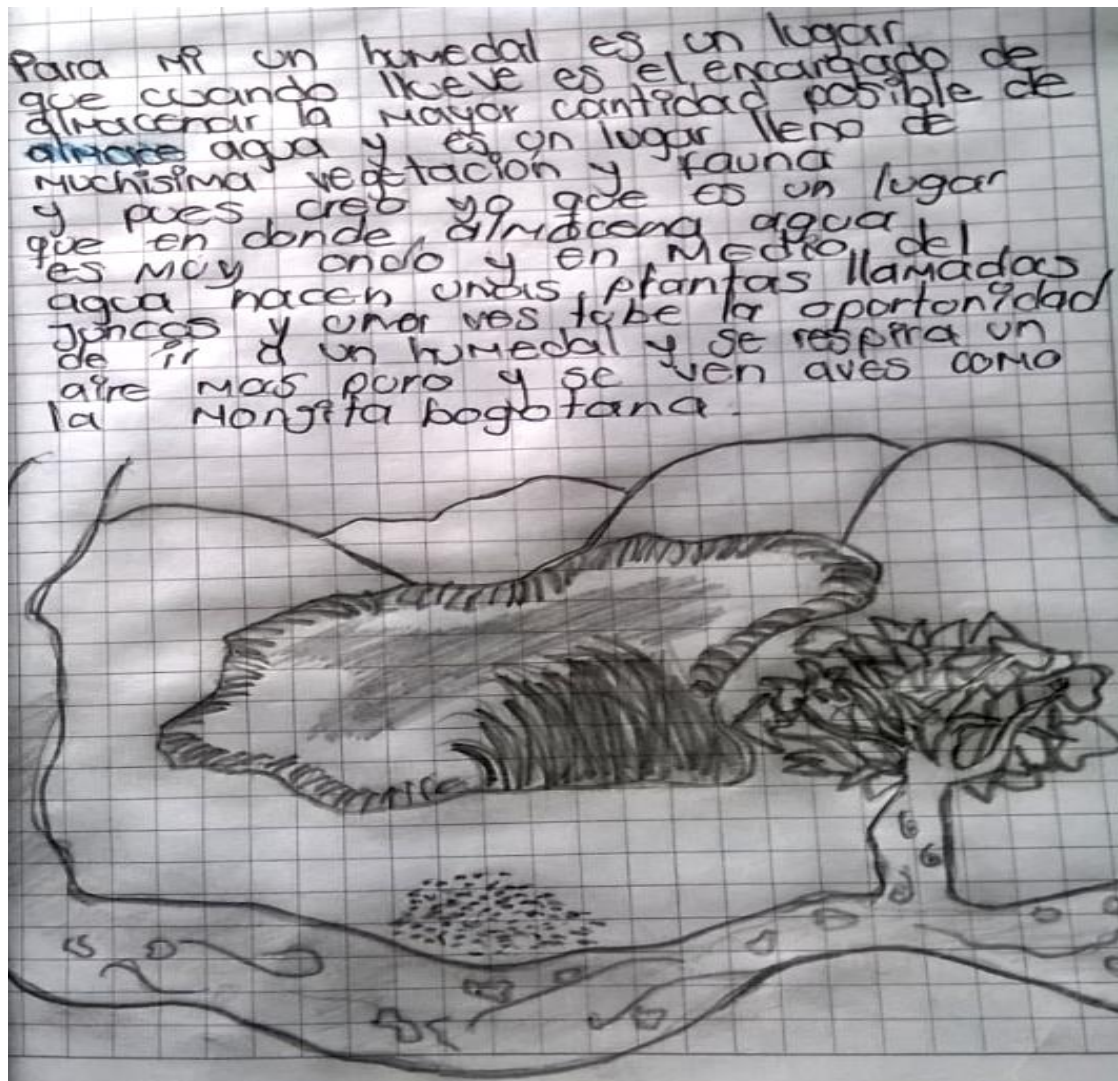 Para Mi un humedal es un lugar
que cuando llueve es el encargado de
almacenar la mayor cantidad posible de
almace agua y es un lugar lleno de
muchisima vegetación y fauna
y pues creo yo que es un lugar
que en donde almacena agua
es muy ondo y en medio del
agua nacen unas plantas llamadas
Juncos y una ves tube la oportunidad
de ir a un humedal y se respira un
aire mas puro y se ven aves como
la Monjita bogotana.